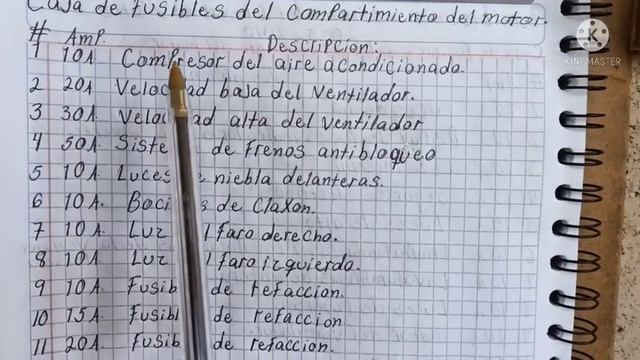 Caja de fusibles del compartimiento del motor.
# Amp. Descripcion:
1 10A Compresor del aire acondicionado.
2 20A Velocidad baja del ventilador.
3 30A Velocidad alta del ventilador
4 50A Sistema de frenos antibloqueo
5 10A Luces de niebla delanteras.
6 10A. Bocinas de Claxon.
7 10A. Luz del faro derecho.
8 10A. Luz del faro izquierdo.
9 10A. Fusible de refaccion.
10 15A. Fusible de refaccion.
11 20A. Fusible de refaccion.
KINEMASTER